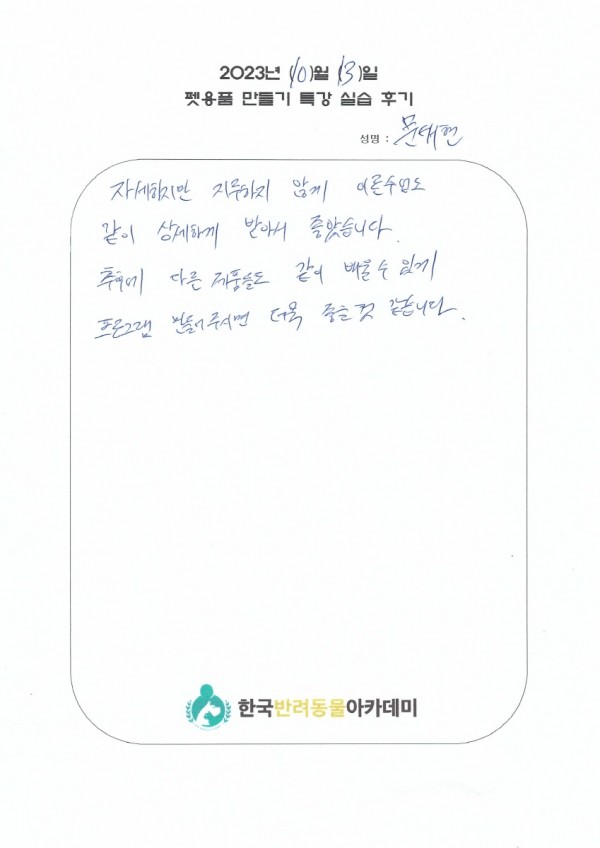 2023년 (10)월 (13)일
펫용품 만들기 특강 실습 후기
성명 : 문태현
자세하지만 지루하지 않게 이론수업도
같이 상세하게 받아서 좋았습니다.
추후에 다른 제품들도 같이 배울 수 있게
프로그램 만들어주시면 더욱 좋을것 같습니다.
한국반려동물아카데미